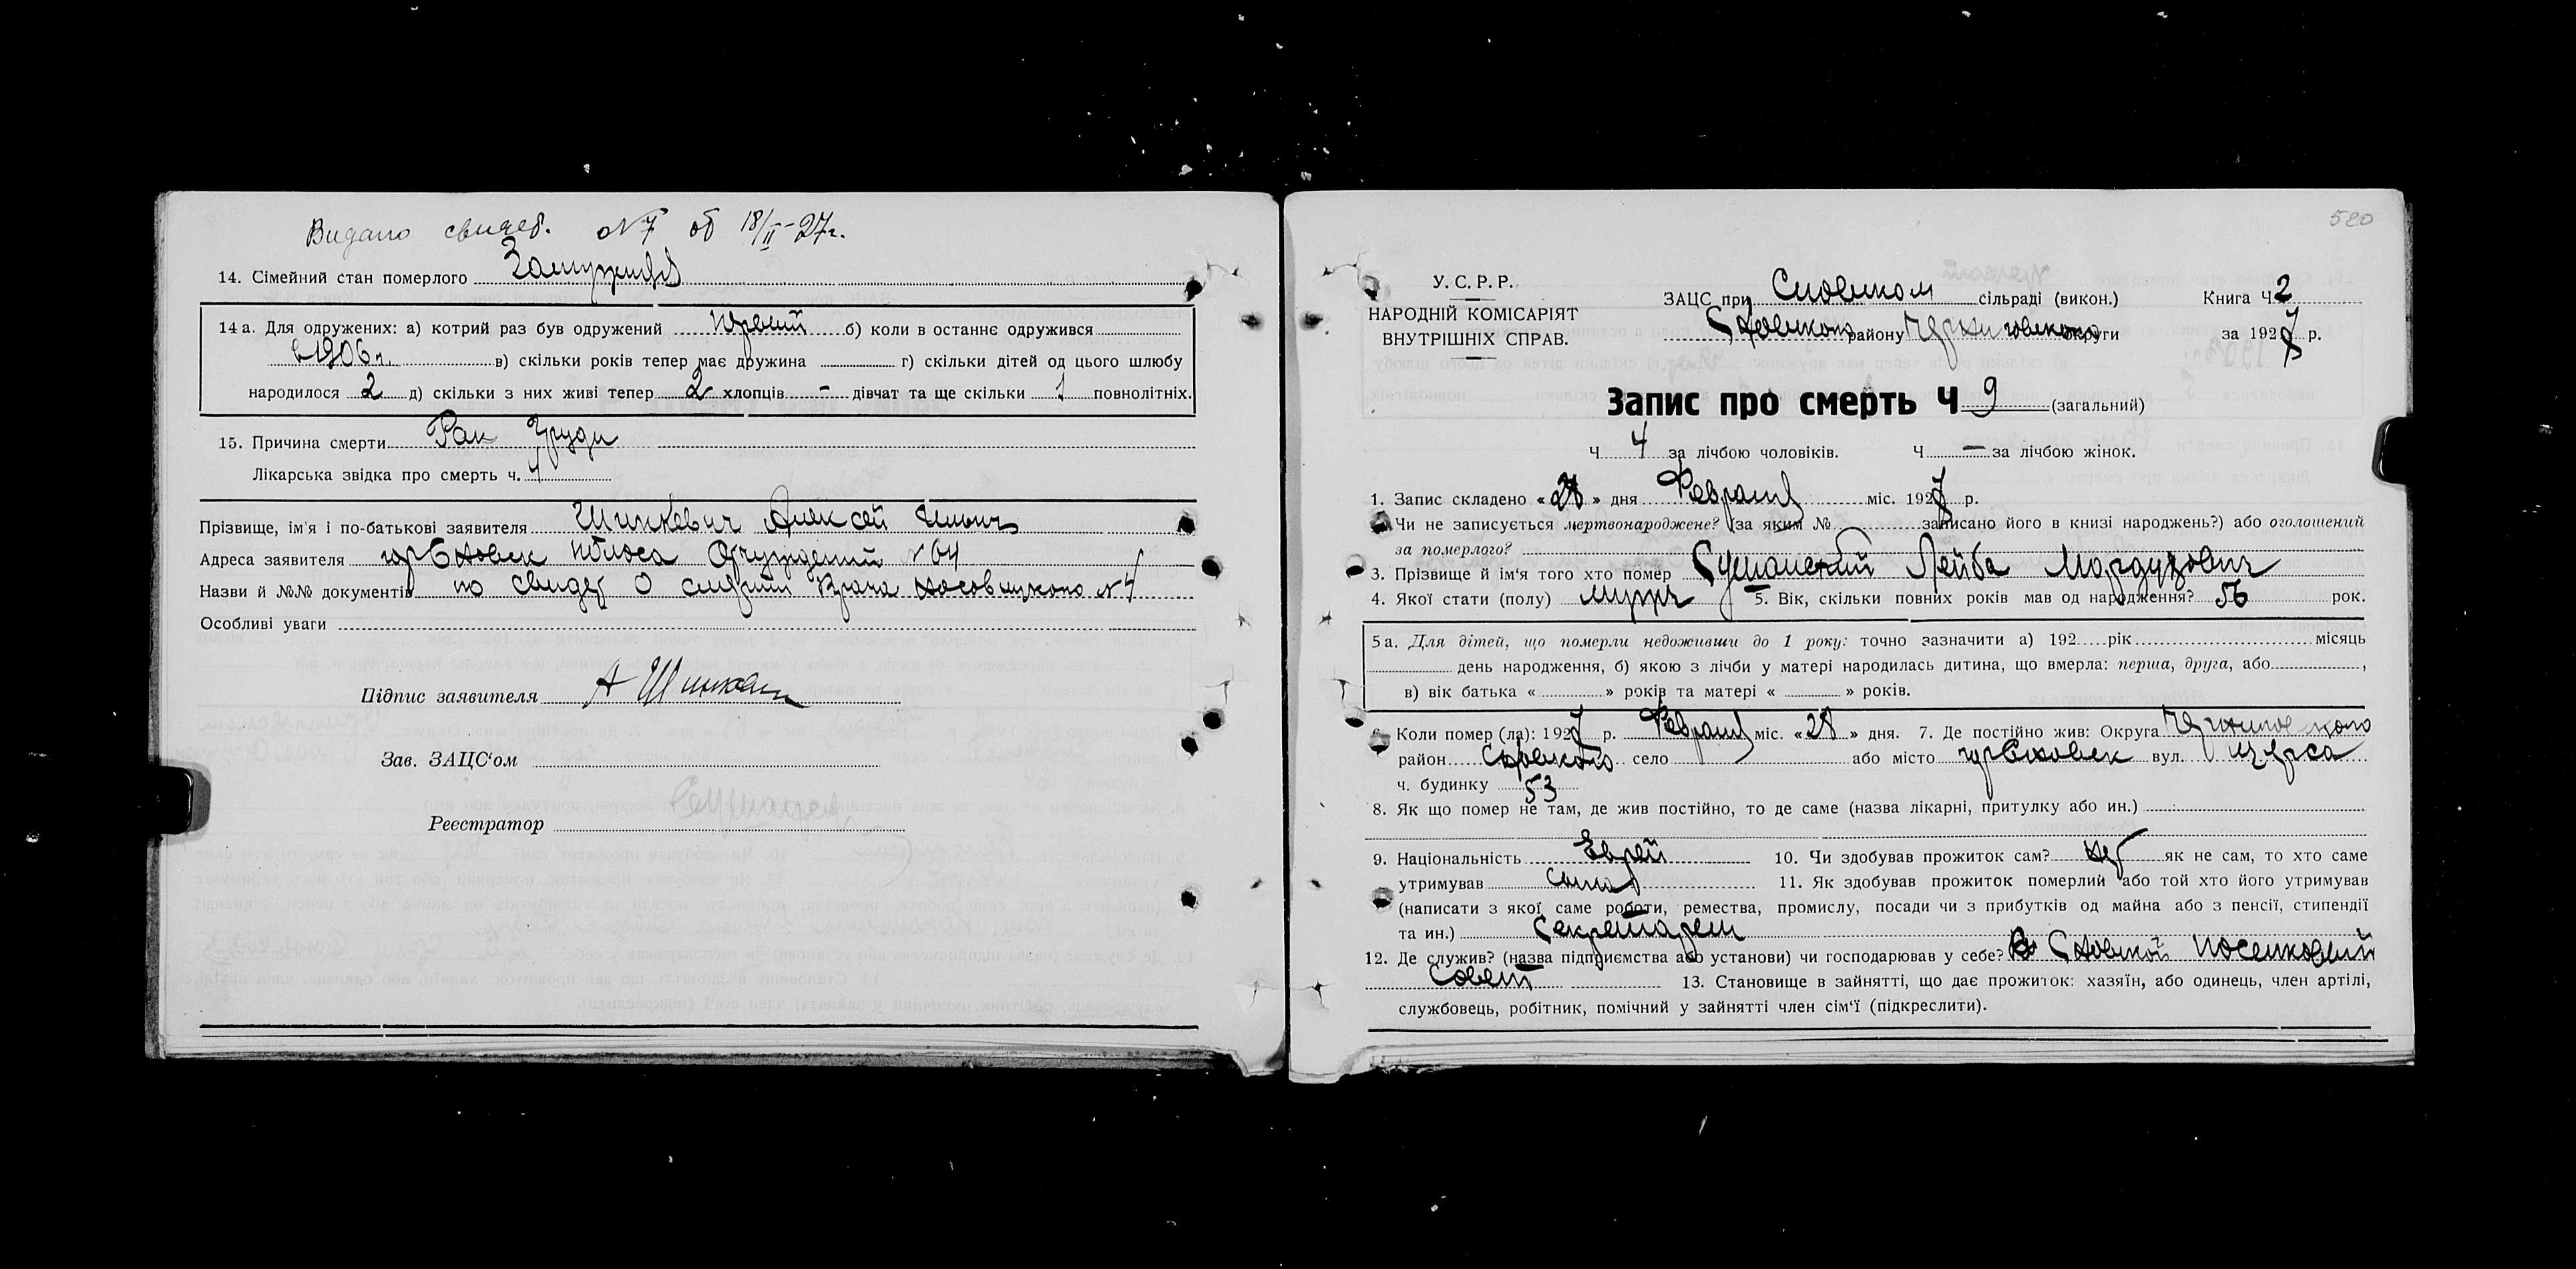 Видано свидет. №7 от 18/II-27г.
14. Сімейний стан померлого Замужняя
14 а. Для одружених: а) котрий раз був одружений первий б) коли в останнє одружився
в 1906 г. в) скільки років тепер має дружина г) скільки дітей од цього шлюбу
народилося 2 д) скільки з них живі тепер 2 хлопців – дівчат та ще скільки 1 повнолітніх.
15. Причина смерти Рак Груди
Лікарська звідка про смерть ч. 4
Прізвище, ім'я і по-батькові заявителя Шинкевич Алексей Ильич
Адреса заявителя гор Сновск полоса Отчуждений № 64
Назви й №№ документів по свидет о смерти Врача Носовицкого № 4
Особливі уваги
Підпис заявителя А Шинкев
Зав. ЗАЦС'ом
Реєстратор
520
У. С. Р. Р.
НАРОДНІЙ КОМІСАРІЯТ
ВНУТРІШНІХ СПРАВ.
ЗАЦС при Сновском сільраді (викон.) Книга Ч. 2
Сновского району Черниговского округи за 1927 р.
Запис про смерть Ч 9 (загальний)
Ч 4 за лічбою чоловіків. Ч. – за лічбою жінок.
1. Запис складено « 28 » дня Февраля міс. 1927 р.
Чи не записується мертвонароджене? (за яким № записано його в книзі народжень?) або оголошений
за померлого?
3. Прізвище й ім'я того хто помер Лейба Мордухович
4. Якої стати (полу) мужч 5. Вік, скільки повних років мав од народження? 56 рок.
5 а. Для дітей, що померли недоживши до 1 року: точно зазначити а) 192 рік місяць
день народження, б) якою з лічби у матері народилась дитина, що вмерла: перша, друга, або ,
в) вік батька « » років та матері « » років.
Коли помер (ла): 1927 р. Февраля міс. « 28 » дня. 7. Де постійно жив: Округа Черниговского
район Сновского село або місто гор Сновск вул.
ч. будинку 53
8. Як що помер не там, де жив постійно, то де саме (назва лікарні, притулку або ин.)
9. Національність Еврей 10. Чи здобував прожиток сам? як не сам, то хто саме
утримував 11. Як здобував прожиток померлий або той хто його утримував
(написати з якої саме роботи, ремества, промислу, посади чи з прибутків од майна або з пенсії, стипендії
та ин.) Секретарем
12. Де служив? (назва підприємства або установи) чи господарював у себе? В Сновской поселковый
Совет 13. Становище в зайнятті, що дає прожиток: хазяїн, або одинець, член артілі,
службовець, робітник, помічний у зайнятті член сім'ї (підкреслити).